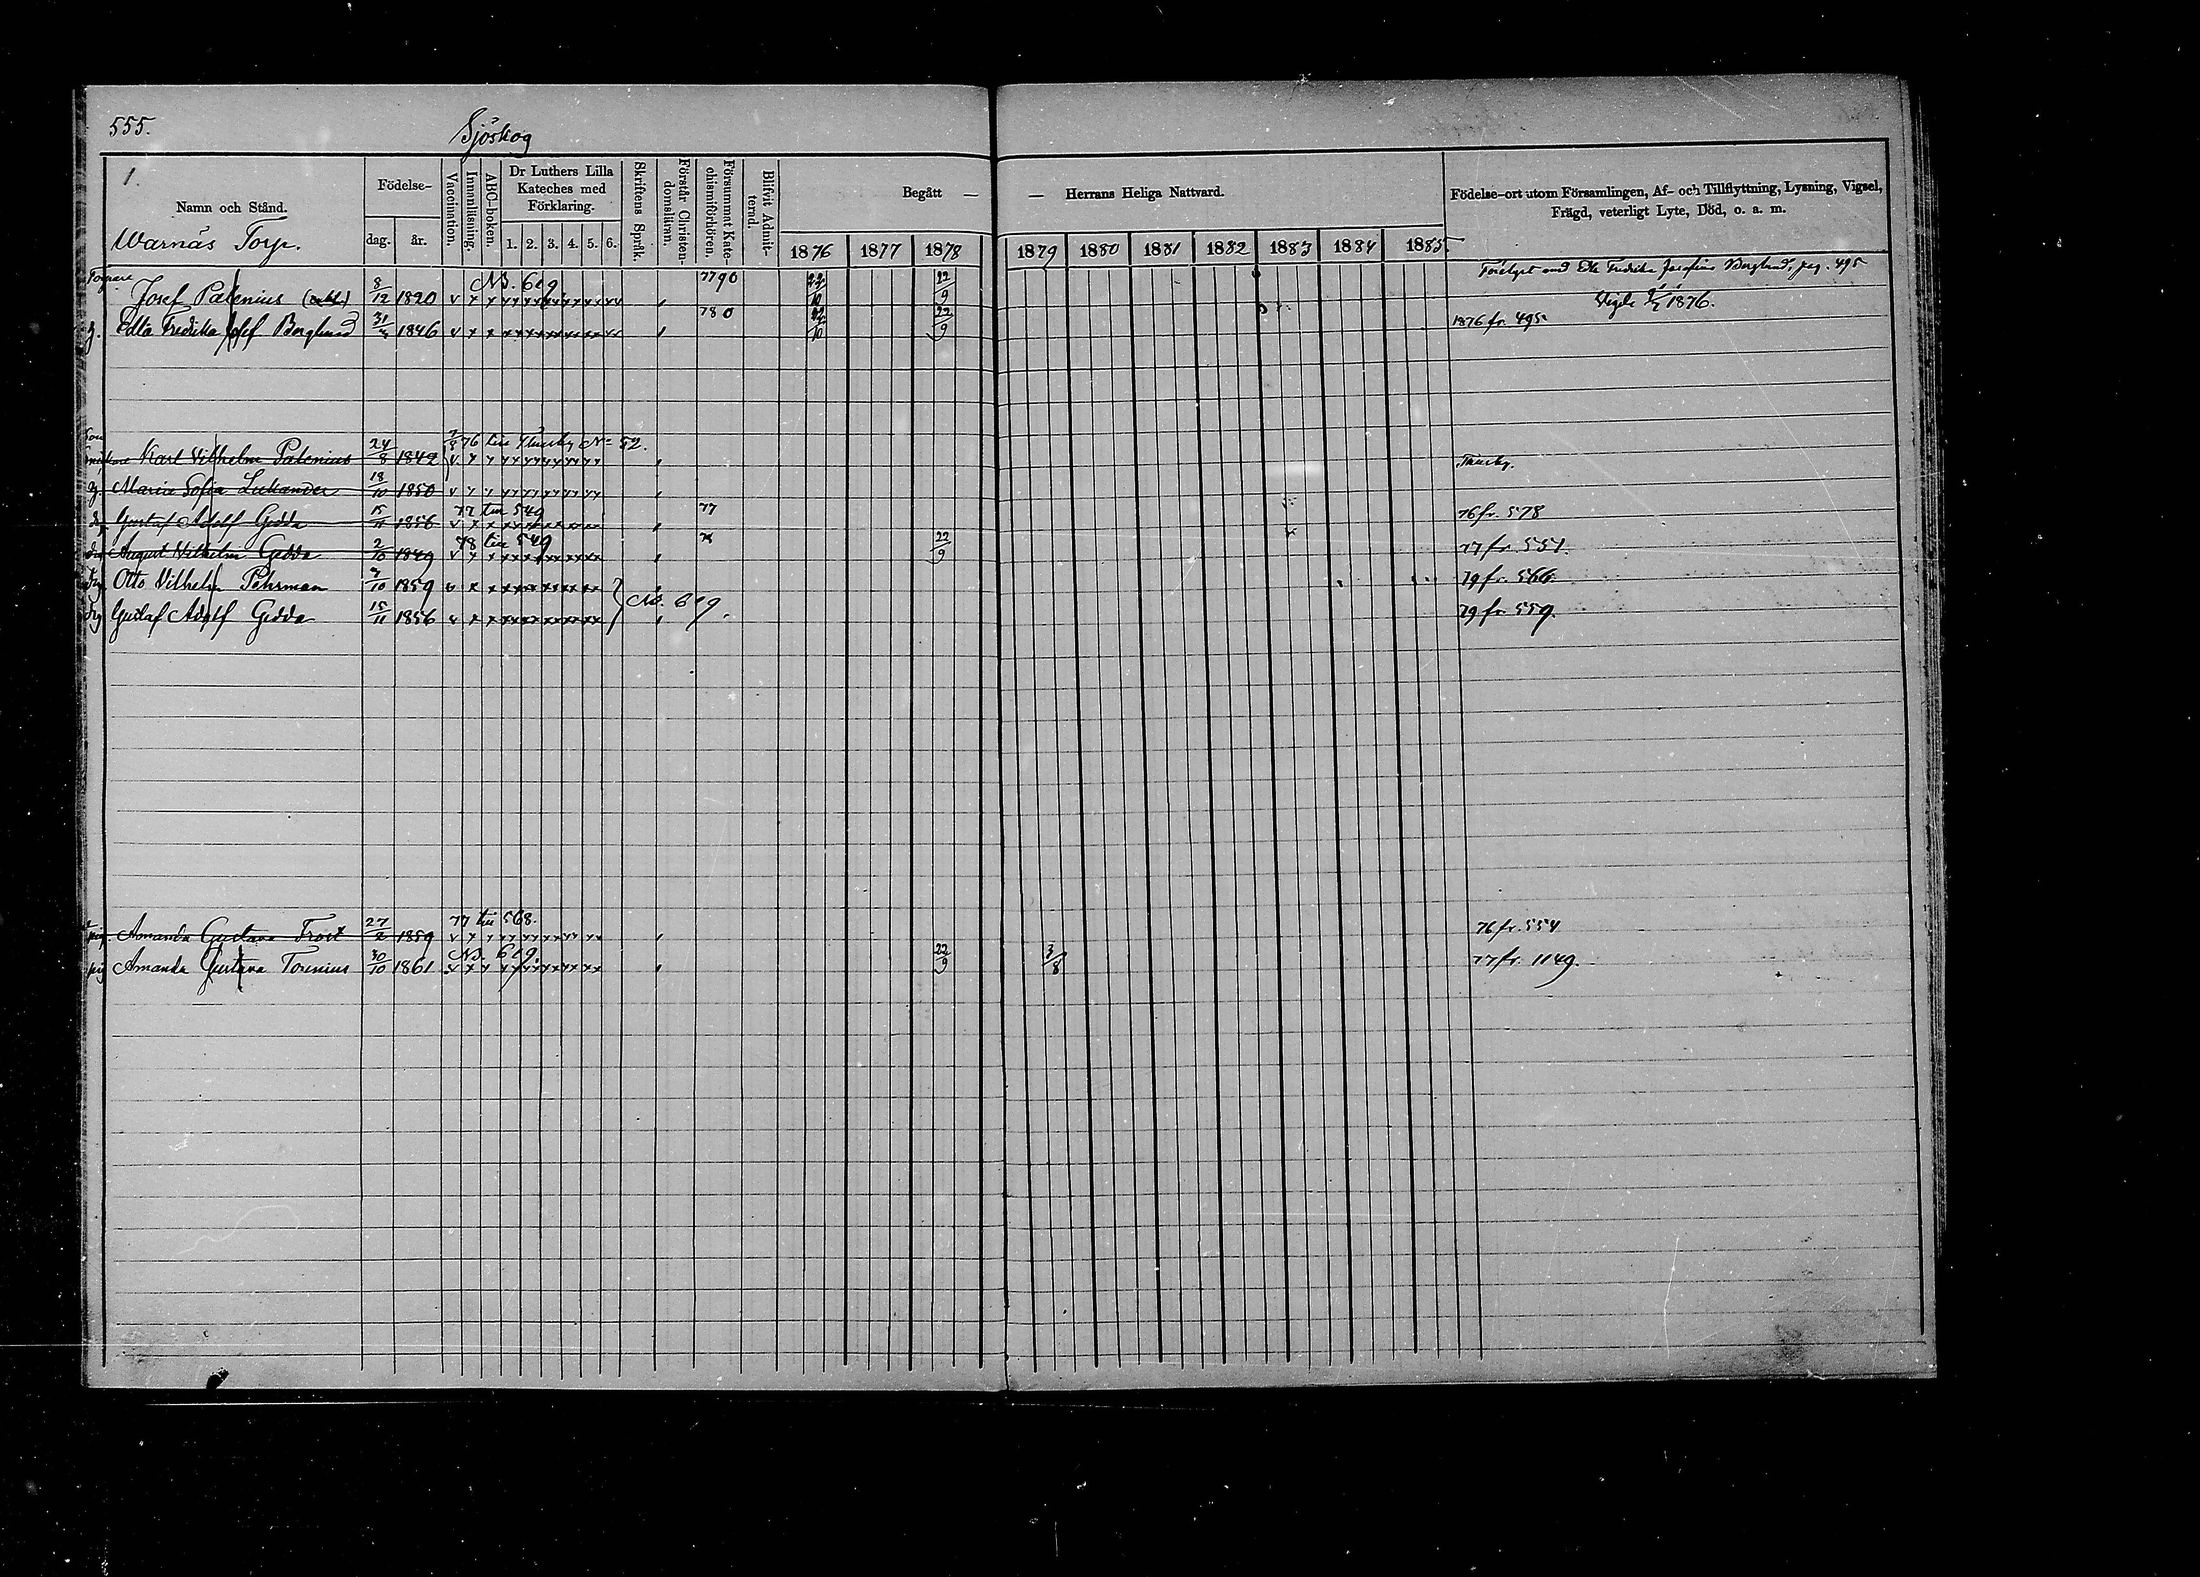 555.
Sjöskog
1.
Namn och Stånd.
Warnäs Torp.
Födelse-
dag. år.
Vaccination.
Innanläsning.
ABC-boken.
Dr Luthers Lilla
Kateches med
Förklaring.
1. 2. 3. 4. 5. 6.
Skriftens Språk.
Förstår Christen-
domsläran.
Försummat Kate-
chismiförhören.
Blifvit Admit-
ternd.
Begått — — Herrans Heliga Nattvard.
1876 1877 1878 1879 1880 1881 1882 1883 1884 1885.
Födelse-ort utom Församlingen, Af- och Tillflyttning, Lysning, Vigsel,
Frägd, veterligt Lyte, Död, o. a. m.
Josef Palenius 8/12 1820 No. 619 7790 22/10 22/9 Edla Fredrika Josefina Berglund, pag. 495
1876.
Edla Fredrika Josef Berglund 1846 780 22/10 22/9 1876 fr. 495
Son
76 No 52.
Karl Vilhelm Palenius 24/8 1842
h. Maria Sofia 18/10 1850
Gustaf Adolf Gedda 15/11 1856 77 till 549 77 76 fr. 578
August Vilhelm Gedda 2/10 1849 78 till 549 22/9 77 fr. 551.
Otto Vilhelm Pehrman 1859 79 fr. 566
Gustaf Adolf Gedda 15/11 1856 No. 619. 79 fr. 559.
Amanda Gustava Trost 27/2 1859 77 till 568. 76 fr. 554
pig Amanda Gustava Torenius 30/10 1861 No. 619. 22/9 3/8 77 fr. 1149.